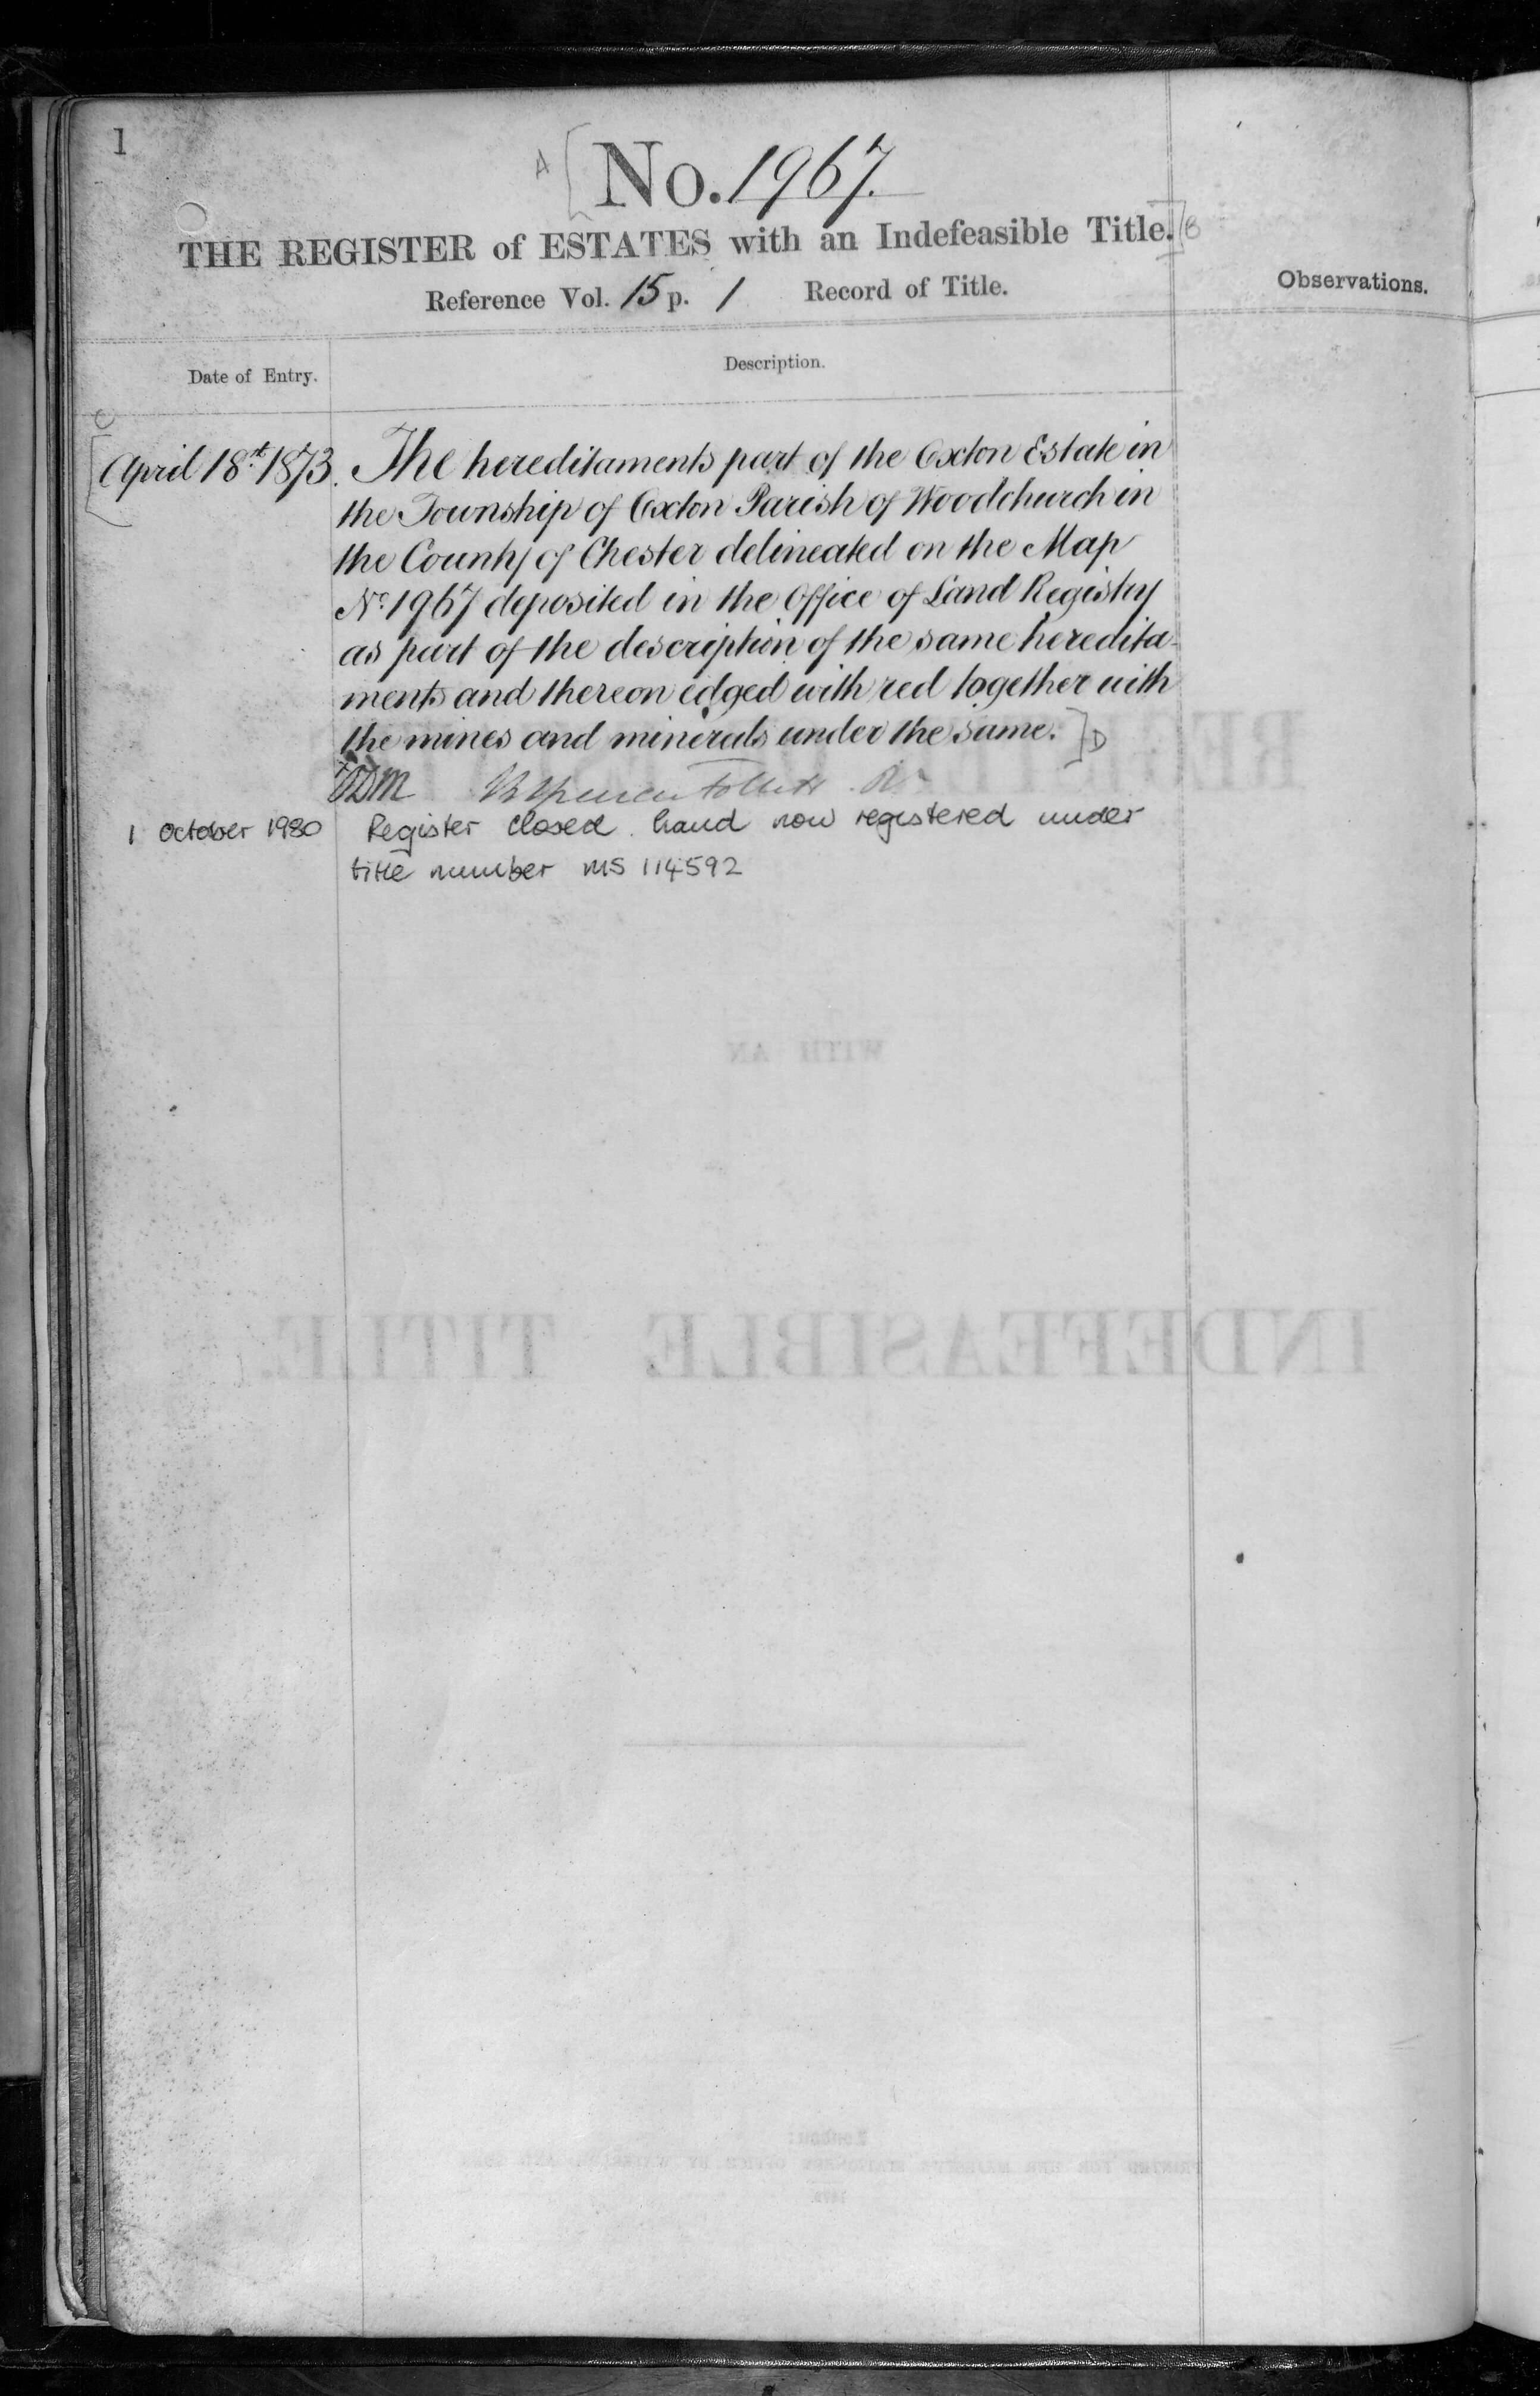 1
A [ No. 1967.
THE REGISTER of ESTATES with an Indefeasible Title. ] B
Reference Vol. 15 p. 1 Record of Title.
Observations.
Date of Entry.
Description.
[ C
April 18th 1873. The hereditaments part of the Oxton Estate in
the Township of Oxton Parish of Woodchurch in
the County of Chester delineated on the Map
No. 1967 deposited in the Office of Land Registry
as part of the description of the same heredita-
ments and thereon edged with red together with
the mines and minerals under the same. ] D
Follett R
1 October 1980 Register closed. Land now registered under
title number MS 114592
WITH AN
INDEFEASIBLE TITLE.